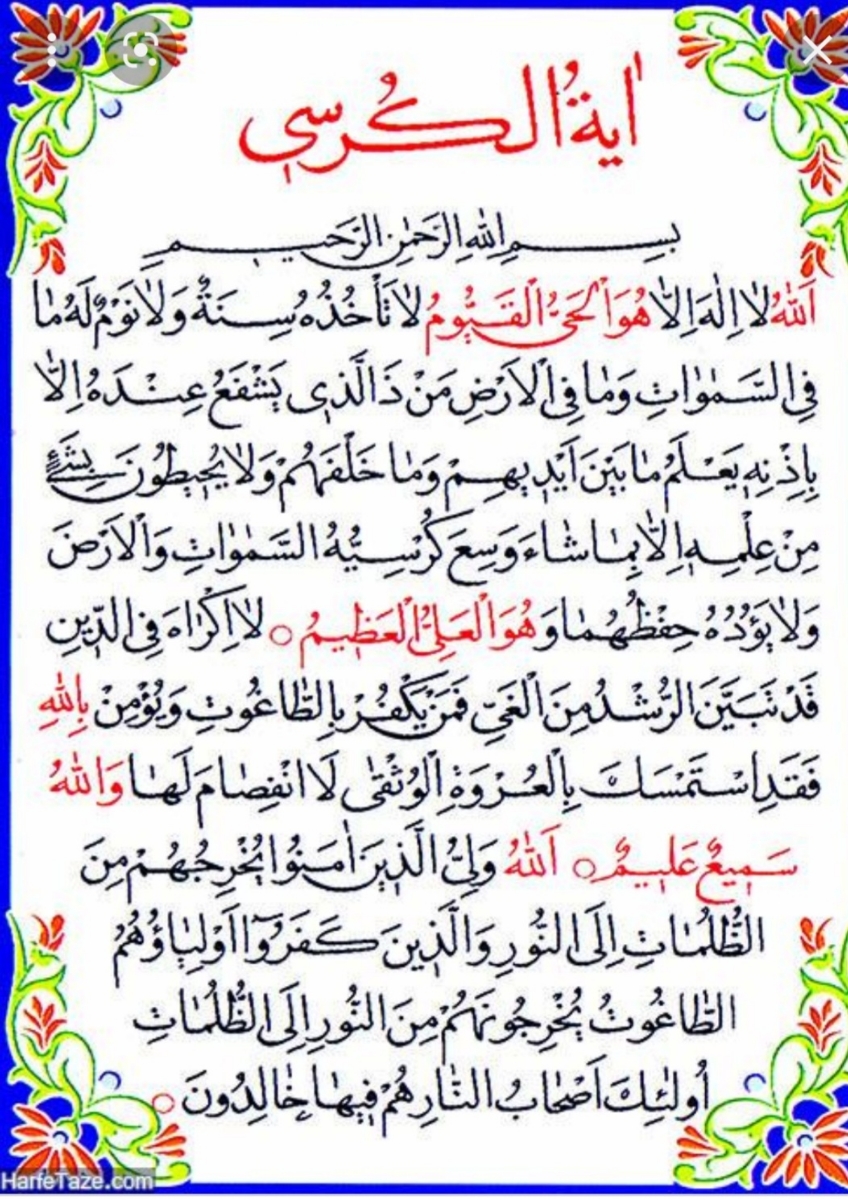 اٰیةُ الکُرسی
بِسمِ اللهِ الرَّحمٰنِ الرَّحیمِ
اَللهُ لا اِلٰهَ اِلّا هُوَ الْحَیُّ الْقَیُّومُ لا تَأْخُذُهُ سِنَةٌ وَلا نَوْمٌ لَهُ مٰا
فِی السَّمٰوٰاتِ وَمٰا فِی الْاَرْضِ مَنْ ذَا الَّذی یَشْفَعُ عِنْدَهُ اِلّا
بِاِذْنِهِ یَعْلَمُ مٰا بَیْنَ اَیْدیهِمْ وَمٰا خَلْفَهُمْ وَلا یُحیطُونَ بِشَیْءٍ
مِنْ عِلْمِهِ اِلّا بِمٰا شٰاءَ وَسِعَ کُرْسِیُّهُ السَّمٰوٰاتِ وَالْاَرْضَ
وَلا یَؤُدُهُ حِفْظُهُمٰا وَ هُوَ الْعَلِیُّ الْعَظیمُ ○ لا اِکْرٰاهَ فِی الدّینِ
قَدْ تَبَیَّنَ الرُّشْدُ مِنَ الْغَیِّ فَمَنْ یَکْفُرْ بِالطّٰاغُوتِ وَیُؤْمِنْ بِاللهِ
فَقَدِ اسْتَمْسَکَ بِالْعُرْوَةِ الْوُثْقیٰ لَا انْفِصٰامَ لَهٰا وَاللهُ
سَمیعٌ عَلیمٌ ○ اَللهُ وَلِیُّ الَّذینَ اٰمَنُوا یُخْرِجُهُمْ مِنَ
الظُّلُمٰاتِ اِلَی النُّورِ وَالَّذینَ کَفَرُوٓا اَوْلِیٰاؤُهُمُ
الطّٰاغُوتُ یُخْرِجُونَهُمْ مِنَ النُّورِ اِلَی الظُّلُمٰاتِ
اُولٰئِکَ اَصْحٰابُ النّٰارِ هُمْ فیهٰا خٰالِدُونَ ○
HarfeTaze.com